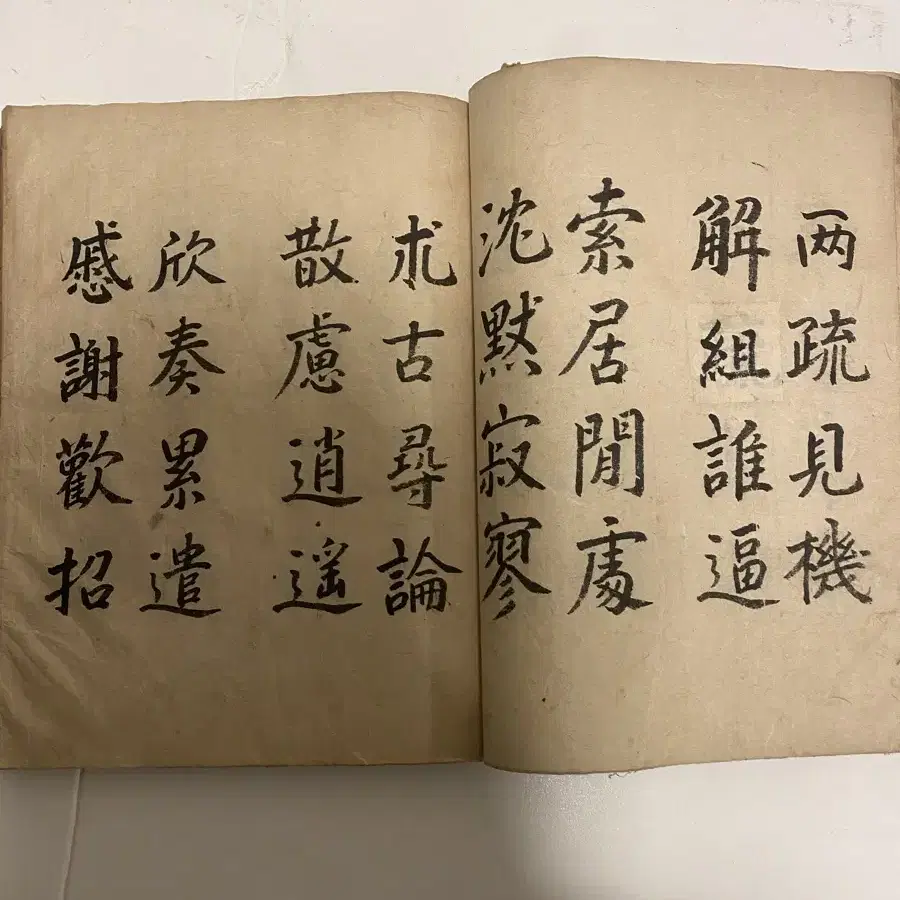 两疏見機
解組誰逼
索居閒處
沈黙寂寥
求古尋論
散慮逍遥
欣奏累遣
慼謝歡招